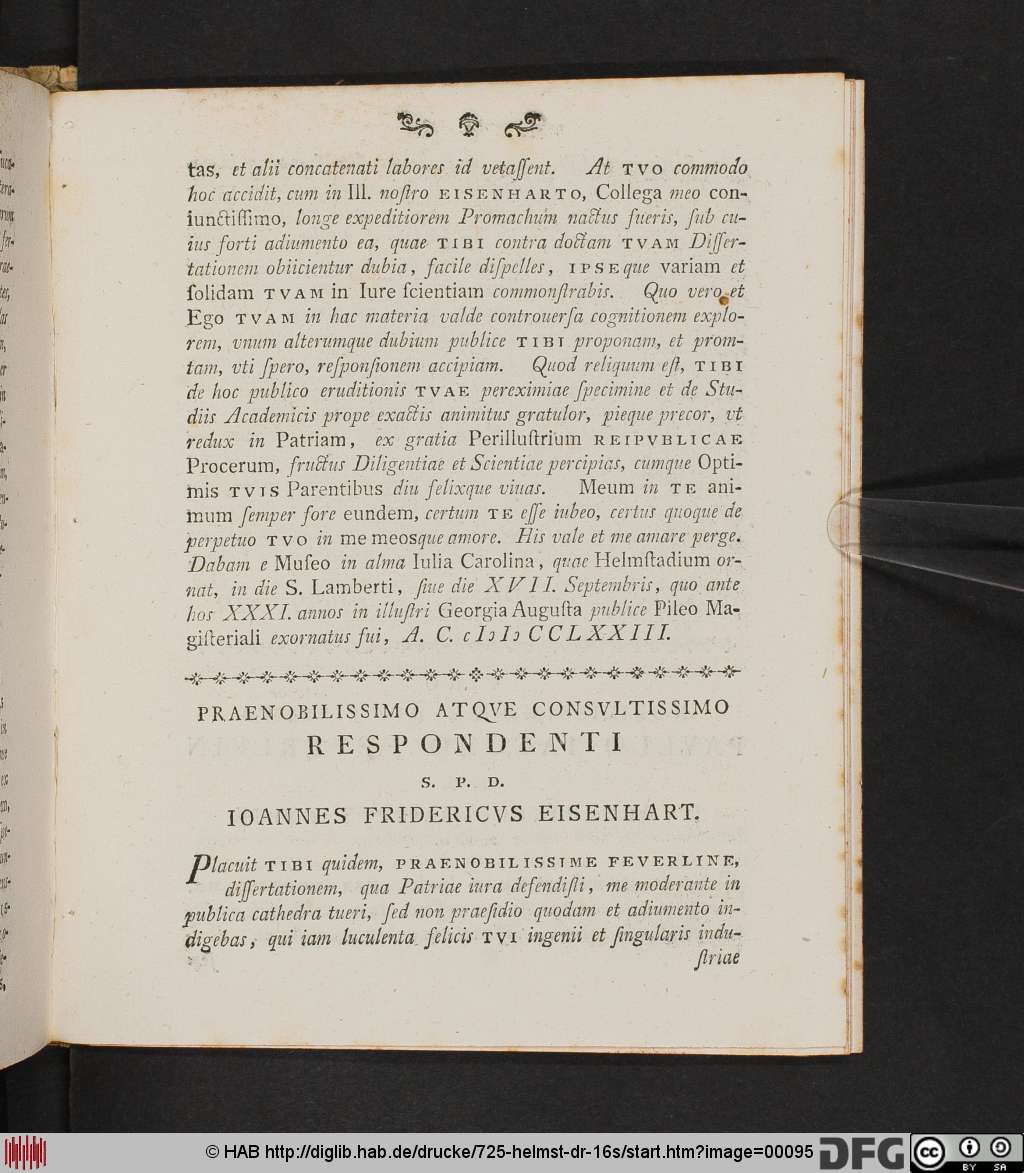 tas, et alii concatenati labores id vetaſſent. At TVO commodo
hoc accidit, cum in Ill. noſtro EISENHARTO, Collega meo con-
iunctiſſimo, longe expeditiorem Promachum nactus fueris, ſub cu-
ius forti adiumento ea, quae TIBI contra doctam TVAM Diſſer-
tationem obiicientur dubia, facile diſpelles, IPSEque variam et
ſolidam TVAM in Iure ſcientiam commonſtrabis. Quo vero et
Ego TVAM in hac materia valde controuerſa cognitionem explo-
rem, vnum alterumque dubium publice TIBI proponam, et prom-
tam, vti ſpero, reſponſionem accipiam. Quod reliquum eſt, TIBI
de hoc publico eruditionis TVAE pereximiae ſpecimine et de Stu-
diis Academicis prope exactis animitus gratulor, pieque precor, vt
redux in Patriam, ex gratia Perilluſtrium REIPVBLICAE
Procerum, fructus Diligentiae et Scientiae percipias, cumque Opti-
mis TVIS Parentibus diu felixque viuas. Meum in TE ani-
mum ſemper fore eundem, certum TE eſſe iubeo, certus quoque de
perpetuo TVO in me meosque amore. His vale et me amare perge.
Dabam e Muſeo in alma Iulia Carolina, quae Helmſtadium or-
nat, in die S. Lamberti, ſiue die XVII. Septembris, quo ante
hos XXXI. annos in illuſtri Georgia Auguſta publice Pileo Ma-
giſteriali exornatus fui, A. C. cIↄIↄCCLXXIII.
PRAENOBILISSIMO ATQVE CONSVLTISSIMO
RESPONDENTI
S. P. D.
IOANNES FRIDERICVS EISENHART.
Placuit TIBI quidem, PRAENOBILISSIME FEVERLINE,
diſſertationem, qua Patriae iura defendiſti, me moderante in
publica cathedra tueri, ſed non praeſidio quodam et adiumento in-
digebas, qui iam luculenta felicis TVI ingenii et ſingularis indu-
ſtriae
© HAB http://diglib.hab.de/drucke/725-helmst-dr-16s/start.htm?image=00095
DFG
cc
BY SA